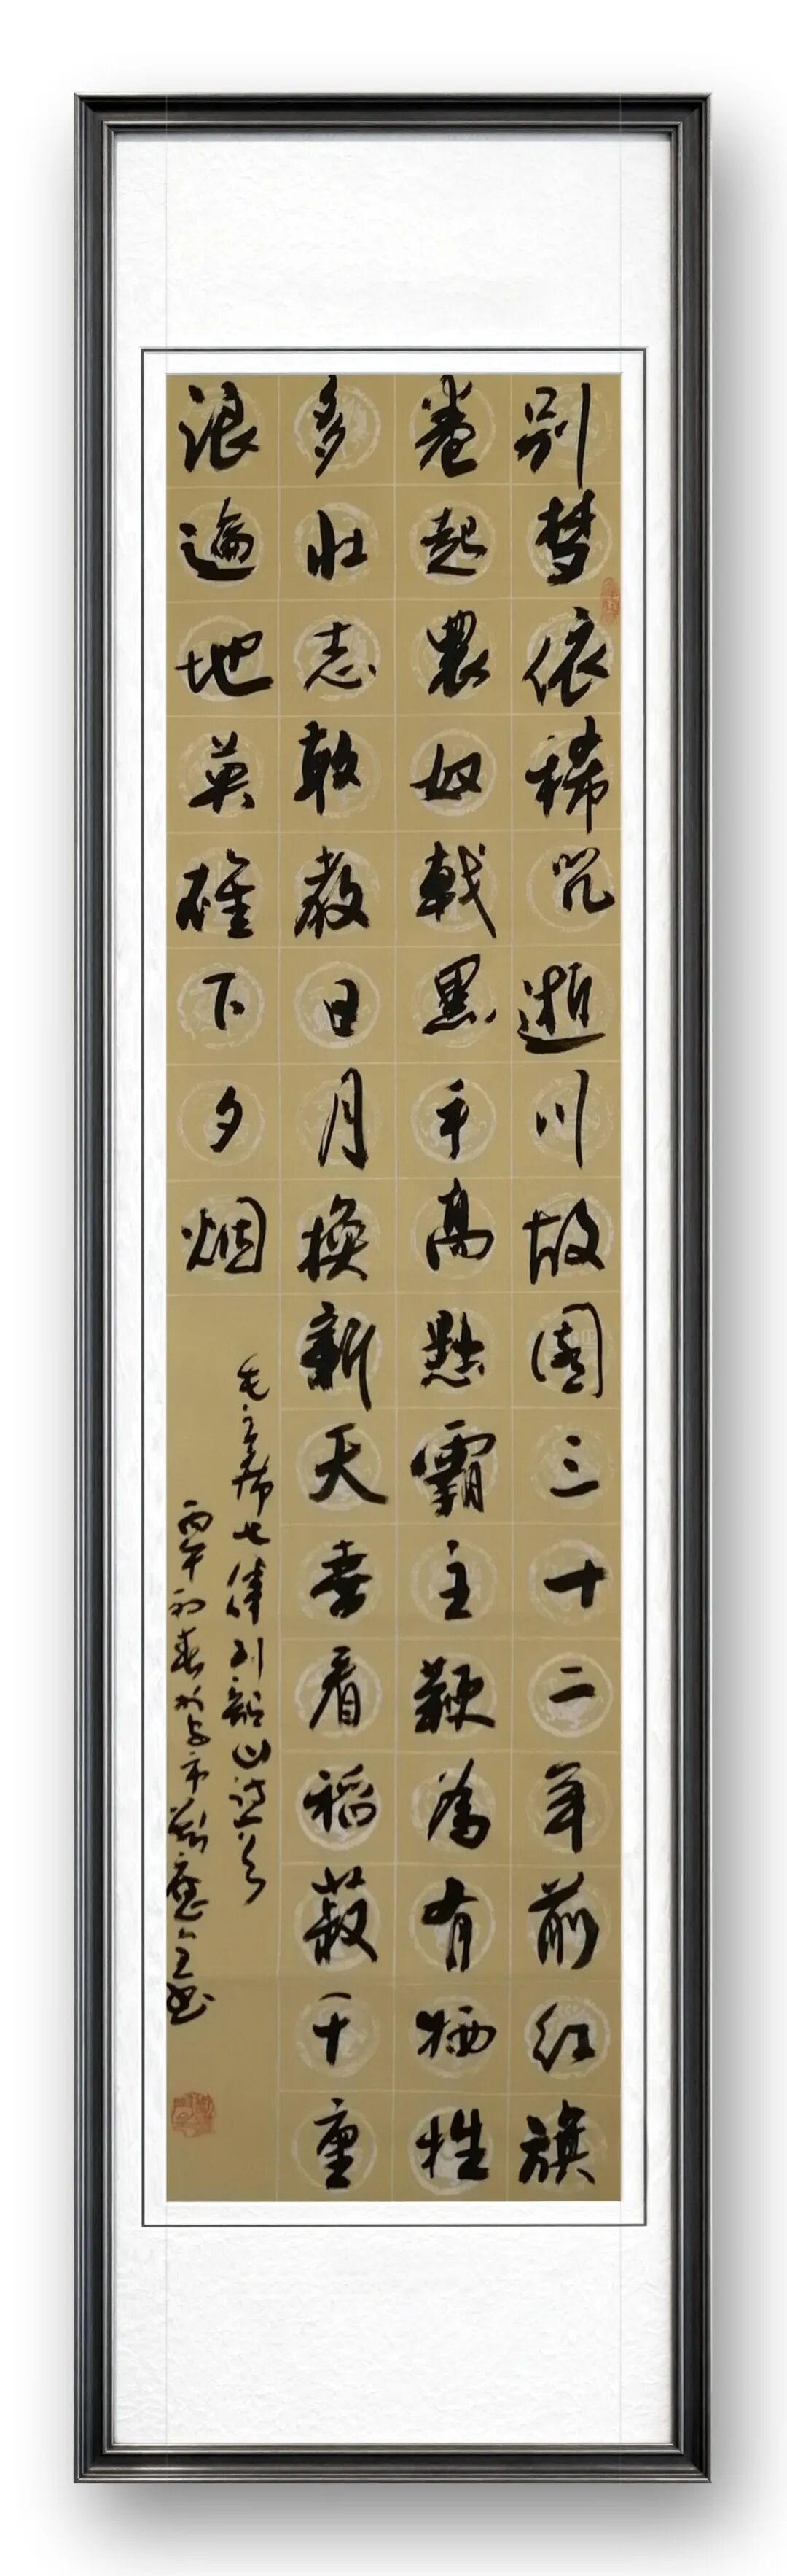 别梦依稀咒逝川故園三十二年前红旗
卷起農奴戟黑手高懸霸主鞭為有牺牲
多壮志敢教日月换新天喜看稻菽千重
浪遍地英雄下夕烟
毛主席七律到韶山诗一首
丙午初春於市應全书